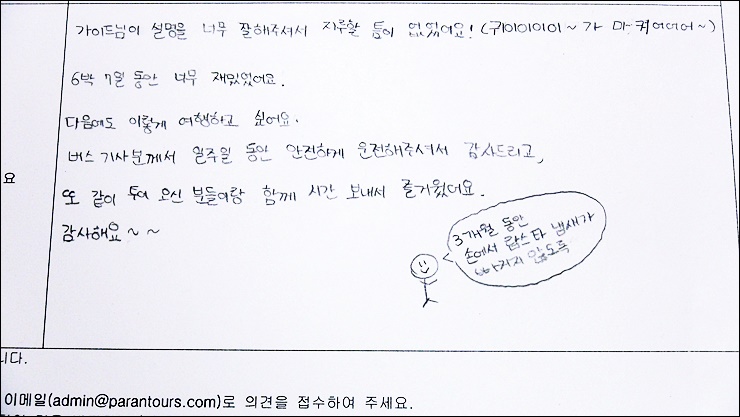 가이드님이 설명을 너무 잘해주셔서 지루할 틈이 없었어요! (귀이이이이~ 가 마~ 커어어어~)
6박 7일 동안 너무 재밌었어요.
다음에도 이렇게 여행하고 싶어요.
버스 기사분께서 일주일 동안 안전하게 운전해주셔서 감사드리고,
요
또 같이 투어 오신 분들이랑 함께 시간 보내서 즐거웠어요.
감사해요~~
3개월 동안
손에서 랍스타 냄새가
빠지지 않도록
니다.
이메일(admin@parantours.com)로 의견을 접수하여 주세요.